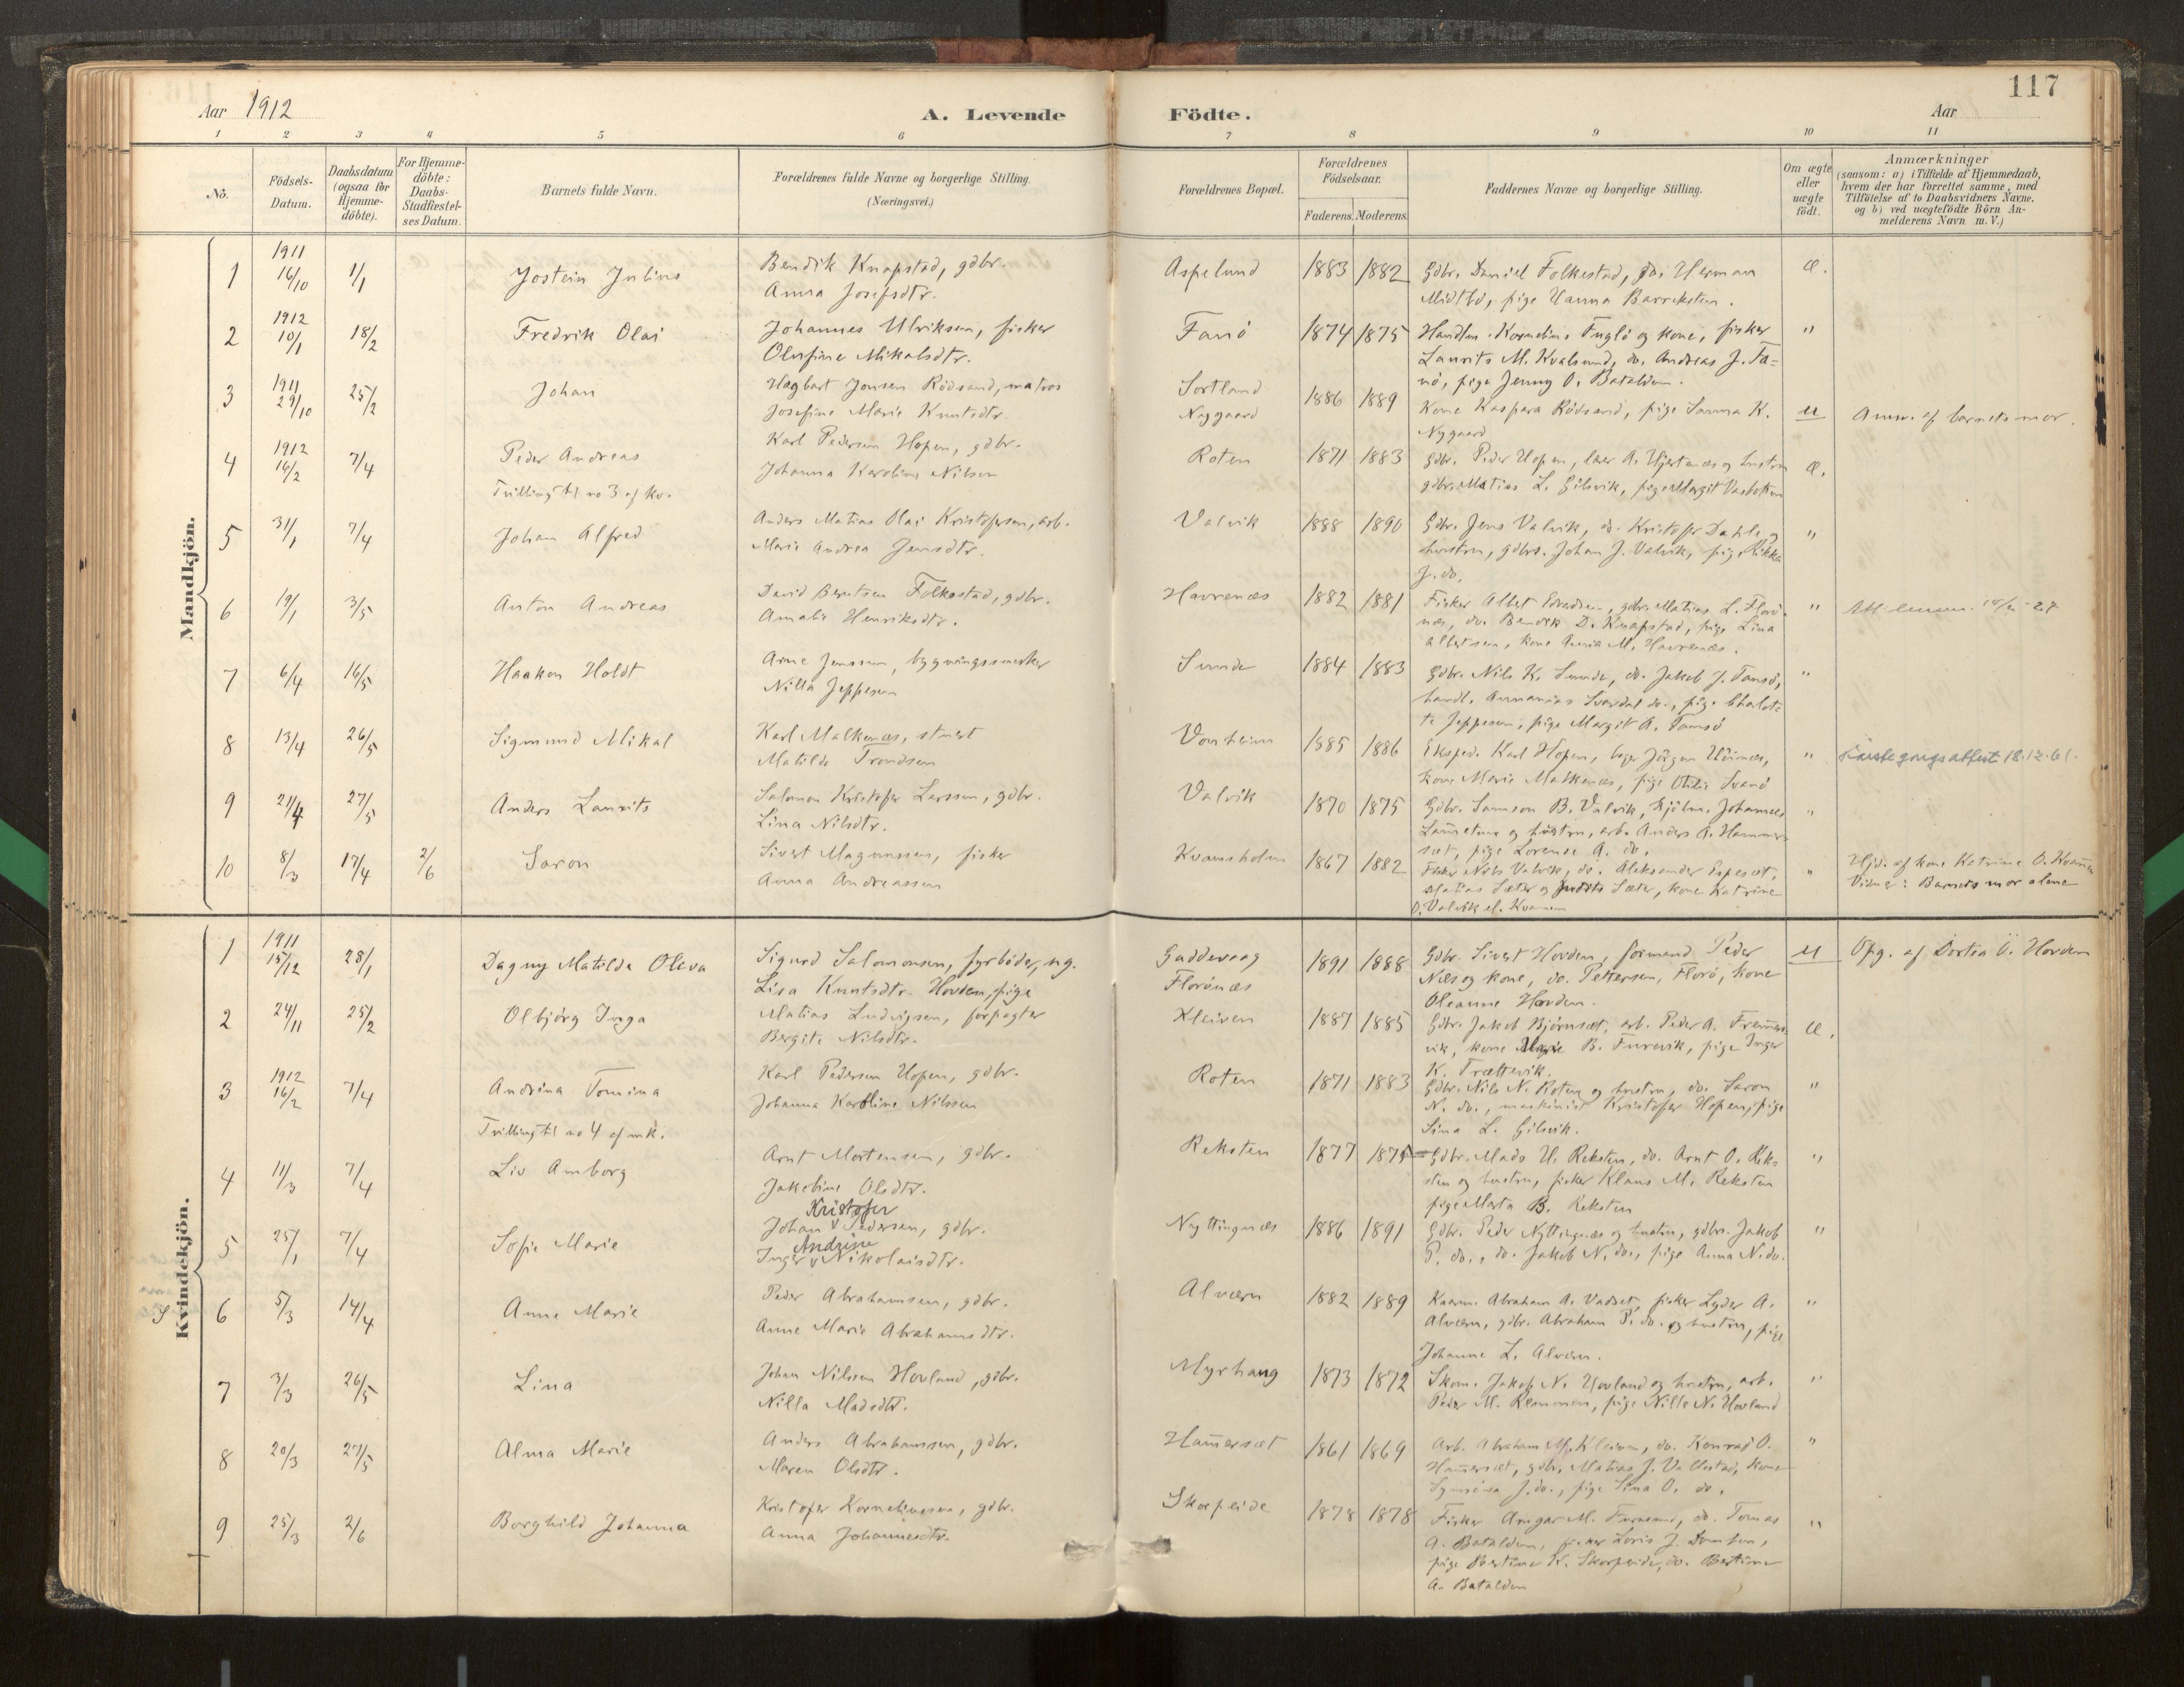 117
Aar 1912
A. Levende Födte.
Aar
1 2 3 4 5 6 7 8 9 10 11
No.
Födsels-Datum.
Daabsdatum (ogsaa for Hjemme-döbte).
For Hjemme-döbte: Daabs-Stadfæstel-ses Datum.
Barnets fulde Navn.
Forældrenes fulde Navne og borgerlige Stilling. (Næringsvei.)
Forældrenes Bopæl.
Forældrenes Födselsaar.
Faderens. Moderens.
Faddernes Navne og borgerlige Stilling.
Om ægte eller uægte födt.
Anmærkninger
(saasom: a) i Tilfælde af Hjemmedaab, hvem der har forrettet samme, med Tilföielse af to Daabsvidners Navne, og b) ved uægtefödte Börn An-melderens Navn m. V.)
Mandkjön.
1 1911 16/10 1/1 Jostein Julius
Bendik Knapstad, gdbr.
Anna Josefsdtr.
Aspelund 1883 1882
Gdbr. Daniel Folkestad, do. Herman
Midtbö, pige Hanna Barreksten.
æ.
2 1912 10/1 18/2 Fredrik Olai
Johannes Ulriksen, fisker
Olufine Mikalsdtr.
Fanö 1874 1875
Handlm. Kornelius Fuglö og kone, fisker
Laurits M. Kvalsund, do. Andreas J. Fa-
nö, pige Jenny O. Batalden.
"
3 1911 29/10 25/2 Johan
Hagbart Jensen Rödsand, matros
Josefine Marie Knutsdtr.
Sortland
Nygaard
1886 1889
Kone Kaspara Rödsand, pige Sanna K.
Nygaard
u
Anm. af barnets mor.
4 1912 16/2 7/4 Peder Andreas
Tvilling til no 3 af kv.
Karl Pedersen Hopen, gdbr.
Johanna Karoline Nilsen
Roten 1871 1883
Gdbr. Peder Hopen, lærer A. Hjertenæs og hustru
gdbr. Matias L. Gilsvik, pige Margit Vasbotten
æ.
5 31/1 7/4 Johan Alfred
Anders Matias Olai Kristofersen, arb.
Marie Andrea Jensdtr.
Valvik 1888 1890
Gdbr. Jens Valvik, do. Kristofer Dahle og
hustru, gdbrs. Johan J. Valvik, pige Rikka
J. do.
"
6 19/1 3/5 Anton Andreas
David Berntsen Folkestad, gdbr.
Amalie Henriksdtr.
Havrenæs 1882 1881
Fisker Albet , gdbr. Matias L. Florö-
næs, do. Bendik D. Knapstad, pige Lina
Albertsen, kone Anna M. Havrenæs.
"
7 6/4 16/5 Haakon Holdt
Arne Jenssen, bygningssnekker
Nilla Jeppesen
Sunde 1884 1883
Gdbr. Nils K. Sunde, do. Jakob J. Tansö,
handl. Annanias Svardal do., pige Charlot-
te Jeppesen, pige Margit A. Tansö
"
8 13/4 26/5 Sigmund Mikal
Karl Malkenæs, stuert
Matilde Trondsen
Vonheim 1885 1886
Eksped. Karl Hopen, bager Jörgen Höinæs,
kone Marie Malkenæs, pige Otilie Svanö
"
attest 18.12.61.
9 21/4 27/5 Anders Laurits
Salomon Kristofer Larssen, gdbr.
Lina Nilsdtr.
Valvik 1870 1875
Gdbr. Samson B. Valvik, kjöbm. Johannes
og hustru, arb. Anders A. Hammer-
sæt, pige Lorense A. do.
"
10 8/3 17/4 2/6 Saron
Sivert Magnussen, fisker
Anna Andreassen
Kvansholm 1867 1882
Fisker Nils Valvik, do. Aleksander Espesæt,
Matias Sæter og Sæter, kone Katrine
O. Valvik el. Kvamen
"
Hjd. af kone Katrine O. Kvamen
Vidner: Barnets mor alene
Kvindekjön.
1 1911 15/12 28/1 Dagny Matilda Oleva
Sigurd Salomonsen, fyrböder, ug.
Lisa Knutsdtr. Hovden, pige
Gaddevaag
Florönæs
1891 1888
Gdbr. Sivert Hovden, formand Peder
Næs og kone, do. Pettersen, Florö, kone
Oleanne Hovden.
u
Opg. af Dortea O. Hovden
2 24/11 25/2 Olbjörg Inga
Matias Ludvigsen, forpagter
Bergite Nilsdtr.
Kleiven 1887 1885
Gdbr. Jakob Björnsæt, arb. Peder A. Fremmers-
vik, kone Marie B. Furevik, pige Inger
K. Trættevik.
æ.
3 1912 16/2 7/4 Andrina Tomina
Tvilling til no 4 af mk.
Karl Pedersen Hopen, gdbr.
Johanna Karoline Nilssen
Roten 1871 1883
Gdbr. Nils N. Roten og hustru, do. Saron
N. do., maskinist Kristofer Hopen, pige
Sina L. Gilsvik.
"
4 11/3 7/4 Liv Amborg
Arnt Mortensen, gdbr.
Jakobine Olsdtr.
Reksten 1877 1875
Gdbr. Mads H. Reksten, do. Arnt O. Rek-
sten og hustru, fisker Klaus M. Reksten
pige Marta B. Reksten
"
5 25/1 7/4 Sofie Marie
Kristofer
Johan v Pedersen, gdbr.
Andrine
Inger v Nikolaisdtr.
Nyttingnæs 1886 1891
Gdbr. Peder Nyttingnæs og hustru, gdbr. Jakob
P. do., do. Jakob N. do., pige Anna N. do.
"
6 5/3 14/4 Anne Marie
Peder Abrahamsen, gdbr.
Anne Marie Abrahamsdtr.
Alværn 1882 1889
Kaarm. Abraham A. Vadset, fisker Lyder A.
Alværn, gdbr. Abraham P. do. og hustru, pige
Johanne L. Alværn.
"
7 3/3 26/5 Lina
Johan Nilssen Hovland, gdbr.
Nilla Madsdtr.
Myrhaug 1873 1872
Skom. Jakob N. Hovland og hustru, arb.
Peder M. Klemmen, pige Nille N. Hovland
"
8 20/3 27/5 Alma Marie
Anders Abrahamssen, gdbr.
Maren Olsdtr.
Hammersæt 1861 1869
Arb. Abraham M. Kleiven, do. Konrad O.
Hammersæt, gdbr. Matias J. Vallestad, kone
J. do., pige Lina O. do.
"
9 25/3 2/6 Borghild Johanna
Kristofer Korneliussen, gdbr.
Anna Johannesdtr.
Skorpeide 1878 1878
Fisker Ansgar M. Furusund, do. Tomas
A. Batalden, fisker Loris J.
pige Bertine K. Skorpeide, do. Bertine
A. Batalden
"